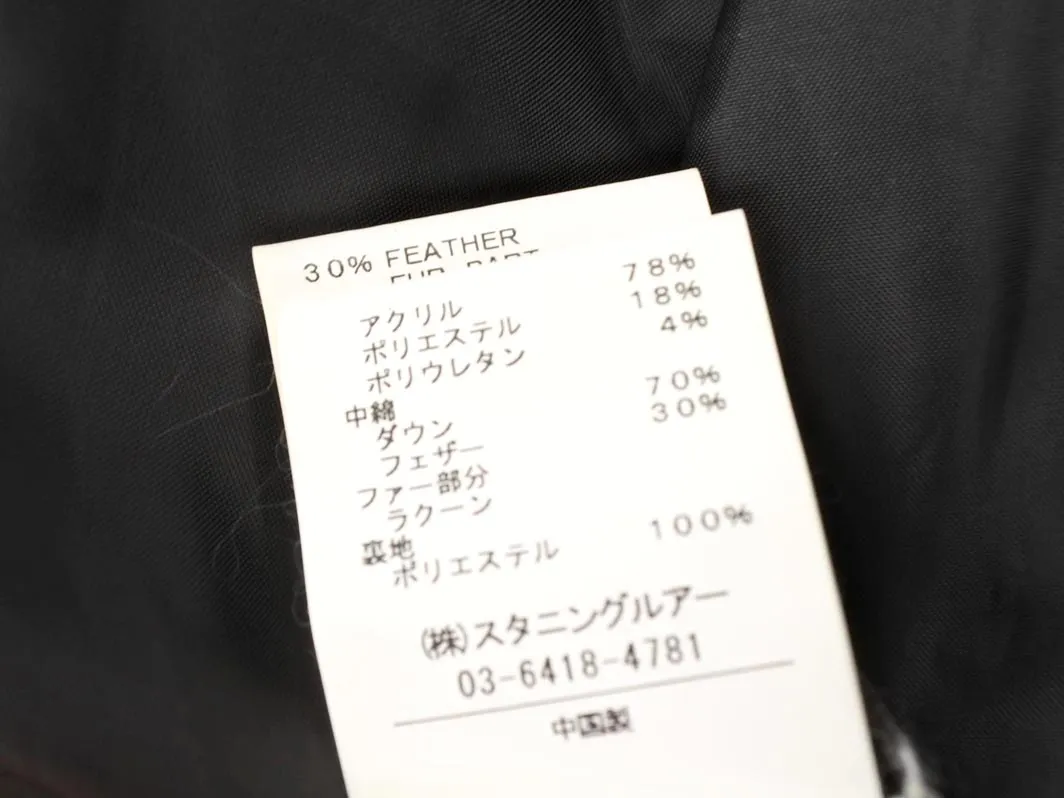 30% FEATHER
FUR PART
アクリル 78%
ポリエステル 18%
ポリウレタン 4%
中綿
ダウン 70%
フェザー 30%
ファー部分
ラクーン
裏地
ポリエステル 100%
(株)スタニングルアー
03-6418-4781
中国製